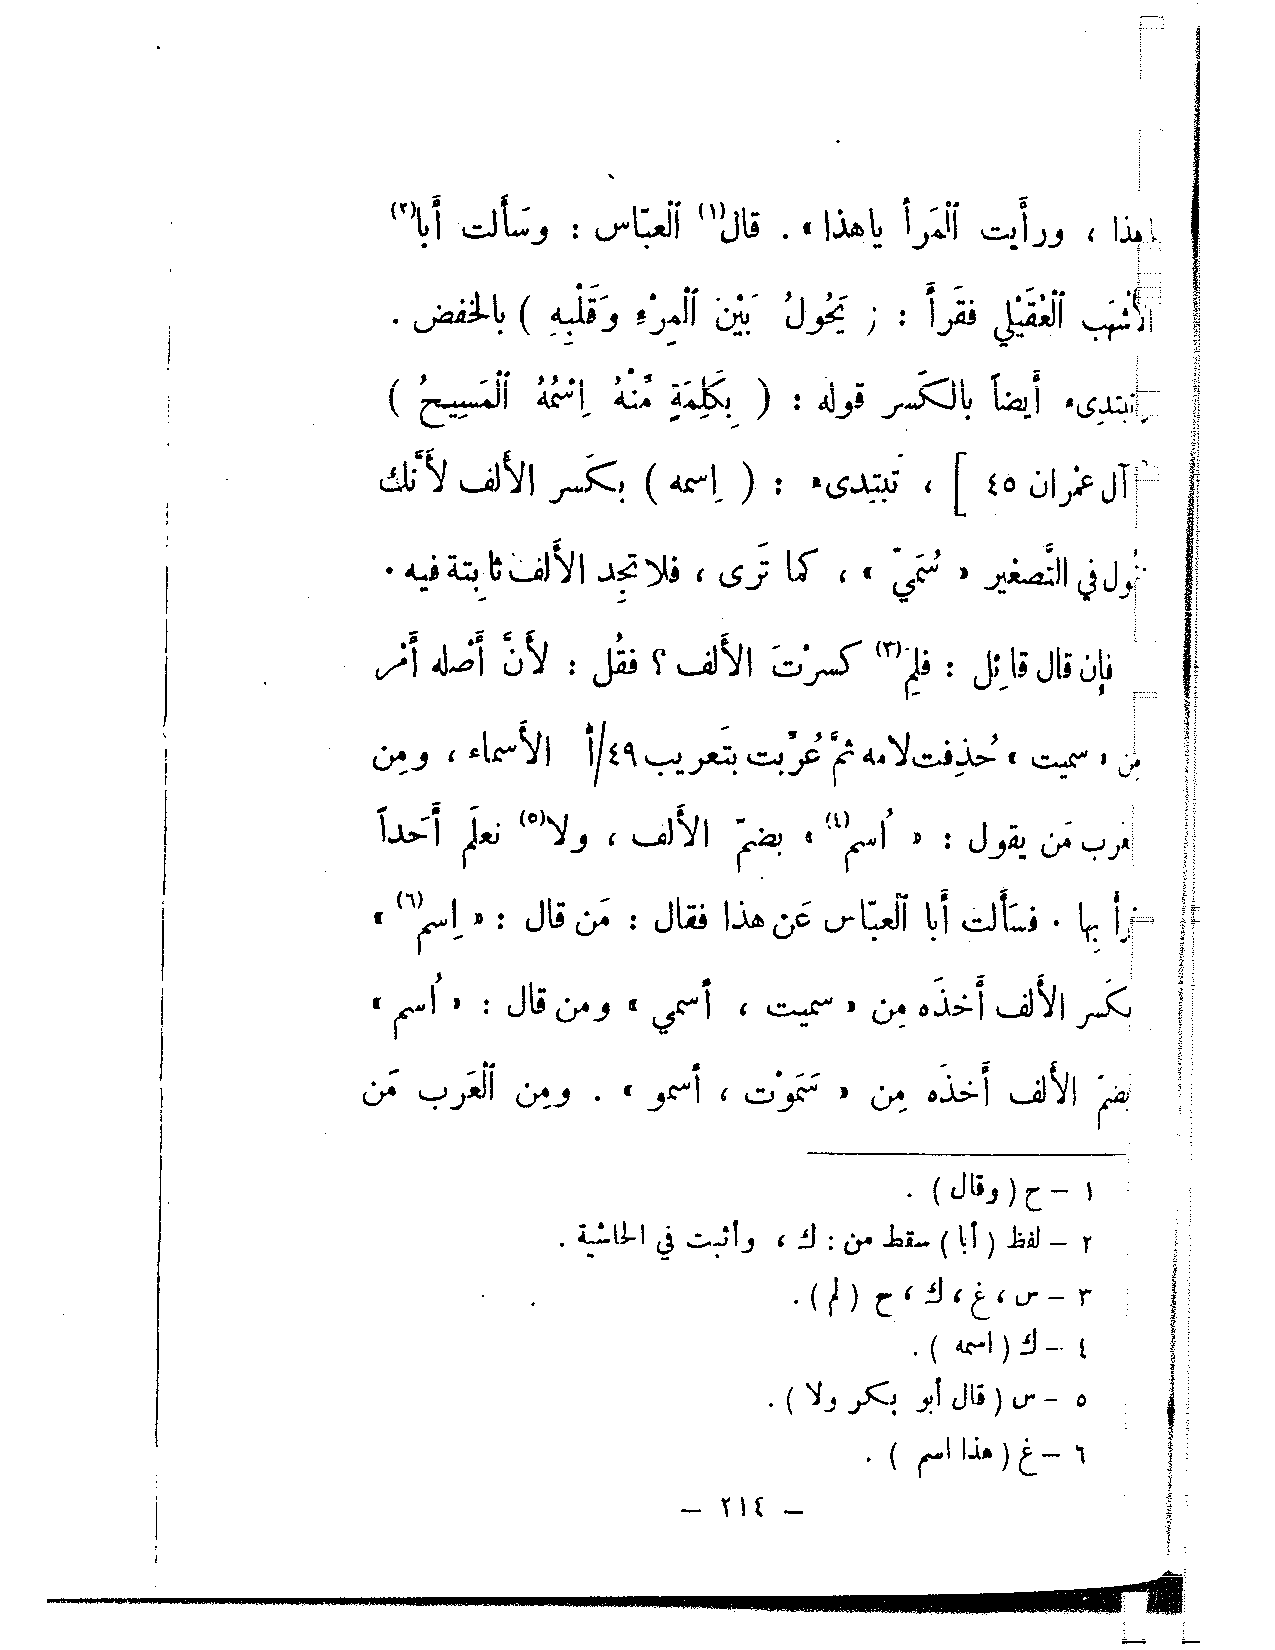 هذا ، ورأَيت ٱلمَرأَ ياهذا » . قال(١) ٱلعبّاس : وسَأَلت أَبا(٢)
الأَشْهَب ٱلعُقَيْلي فقَرأَ : ( يَحُولُ بَيْنَ ٱلمِرْءِ وَقَلْبِهِ ) بالخفض .
وتبتدِىء أَيضاً بالكَسر قوله : ( بِكَلِمَةٍ مِّنْهُ اِسْمُهُ ٱلمَسِيحُ )
آل عمْران ٤٥ ] ، تَبتِدىء : ( اِسمه ) بكَسر الأَلف لأَنَّك
تقول في التَّصغير « سُمَيّ » ، كما تَرى ، فلا تجِد الأَلف ثابِتة فيه .
فإِن قال قائِل : فلِم(٣) كسرْتَ الأَلف ؟ فقُل : لأَنَّ أَصْله أَمْر
مِن « سميت » حُذِفت لامه ثمَّ عُرِّبت بتَعريب ٤٩/أ الأَسماء ، ومِن
العَرب مَن يقول : « اُسم(٤) » بضمّ الأَلف ، ولا(٥) نعلَم أَحَداً
قرأَ بِها . فسَأَلت أَبا ٱلعبّاس عَن هذا فقال : مَن قال : « اِسم(٦) »
بكَسر الأَلف أَخذَه مِن « سميت ، أَسمي » ومن قال : « اُسم »
بضمّ الأَلف أَخذَه مِن « سَمَوْت ، أَسمو » . ومِن ٱلعَرب مَن
١ – ح ( وقال ) .
٢ – لفظ ( أبا ) سقط من : ك ، وأثبت في الحاشية .
٣ – س ، غ ، ك ، ح ( لم ) .
٤ – ك ( اسمه ) .
٥ – س ( قال أبو بكر ولا ) .
٦ – غ ( هذا اسم ) .
– ٢١٤ –